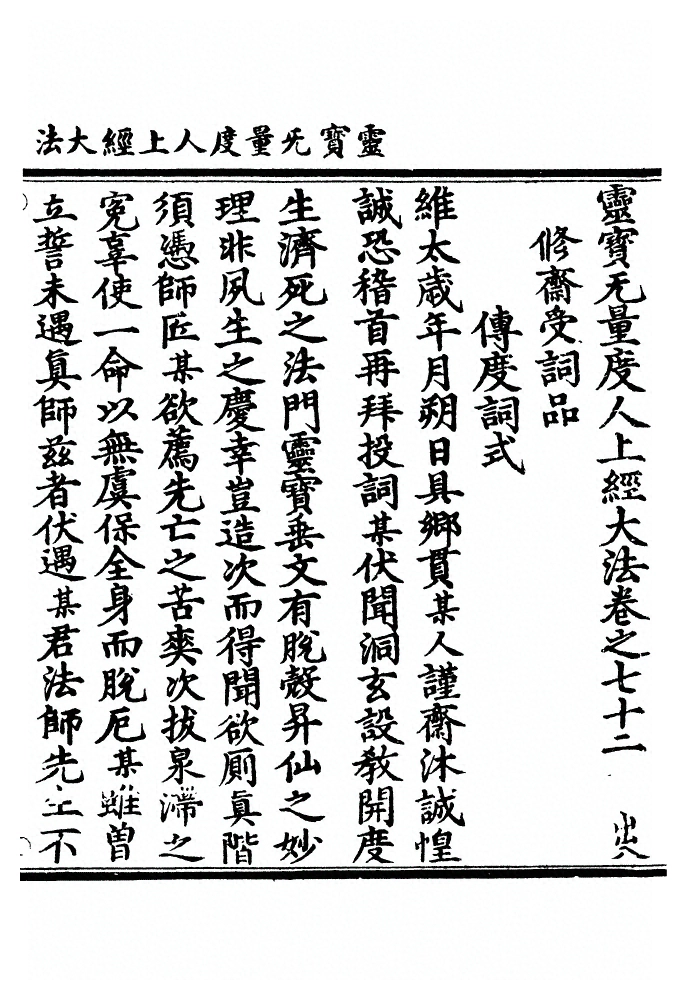 靈寶旡量度人上經大法
靈寶旡量度人上經大法卷之七十二 出八
修齋受詞品
傳度詞式
維太歲年月朔日具鄉貫某人謹齋沐誠惶
誠恐稽首再拜投詞某伏聞洞玄設教開度
生濟死之法門靈寶垂文有脫殼昇仙之妙
理非夙生之慶幸豈造次而得聞欲厠真階
須憑師匠某欲薦先亡之苦爽次拔泉滯之
冤辜使一命以無虞保全身而脫厄某雖曾
立誓未遇真師茲者伏遇某君法師先生不